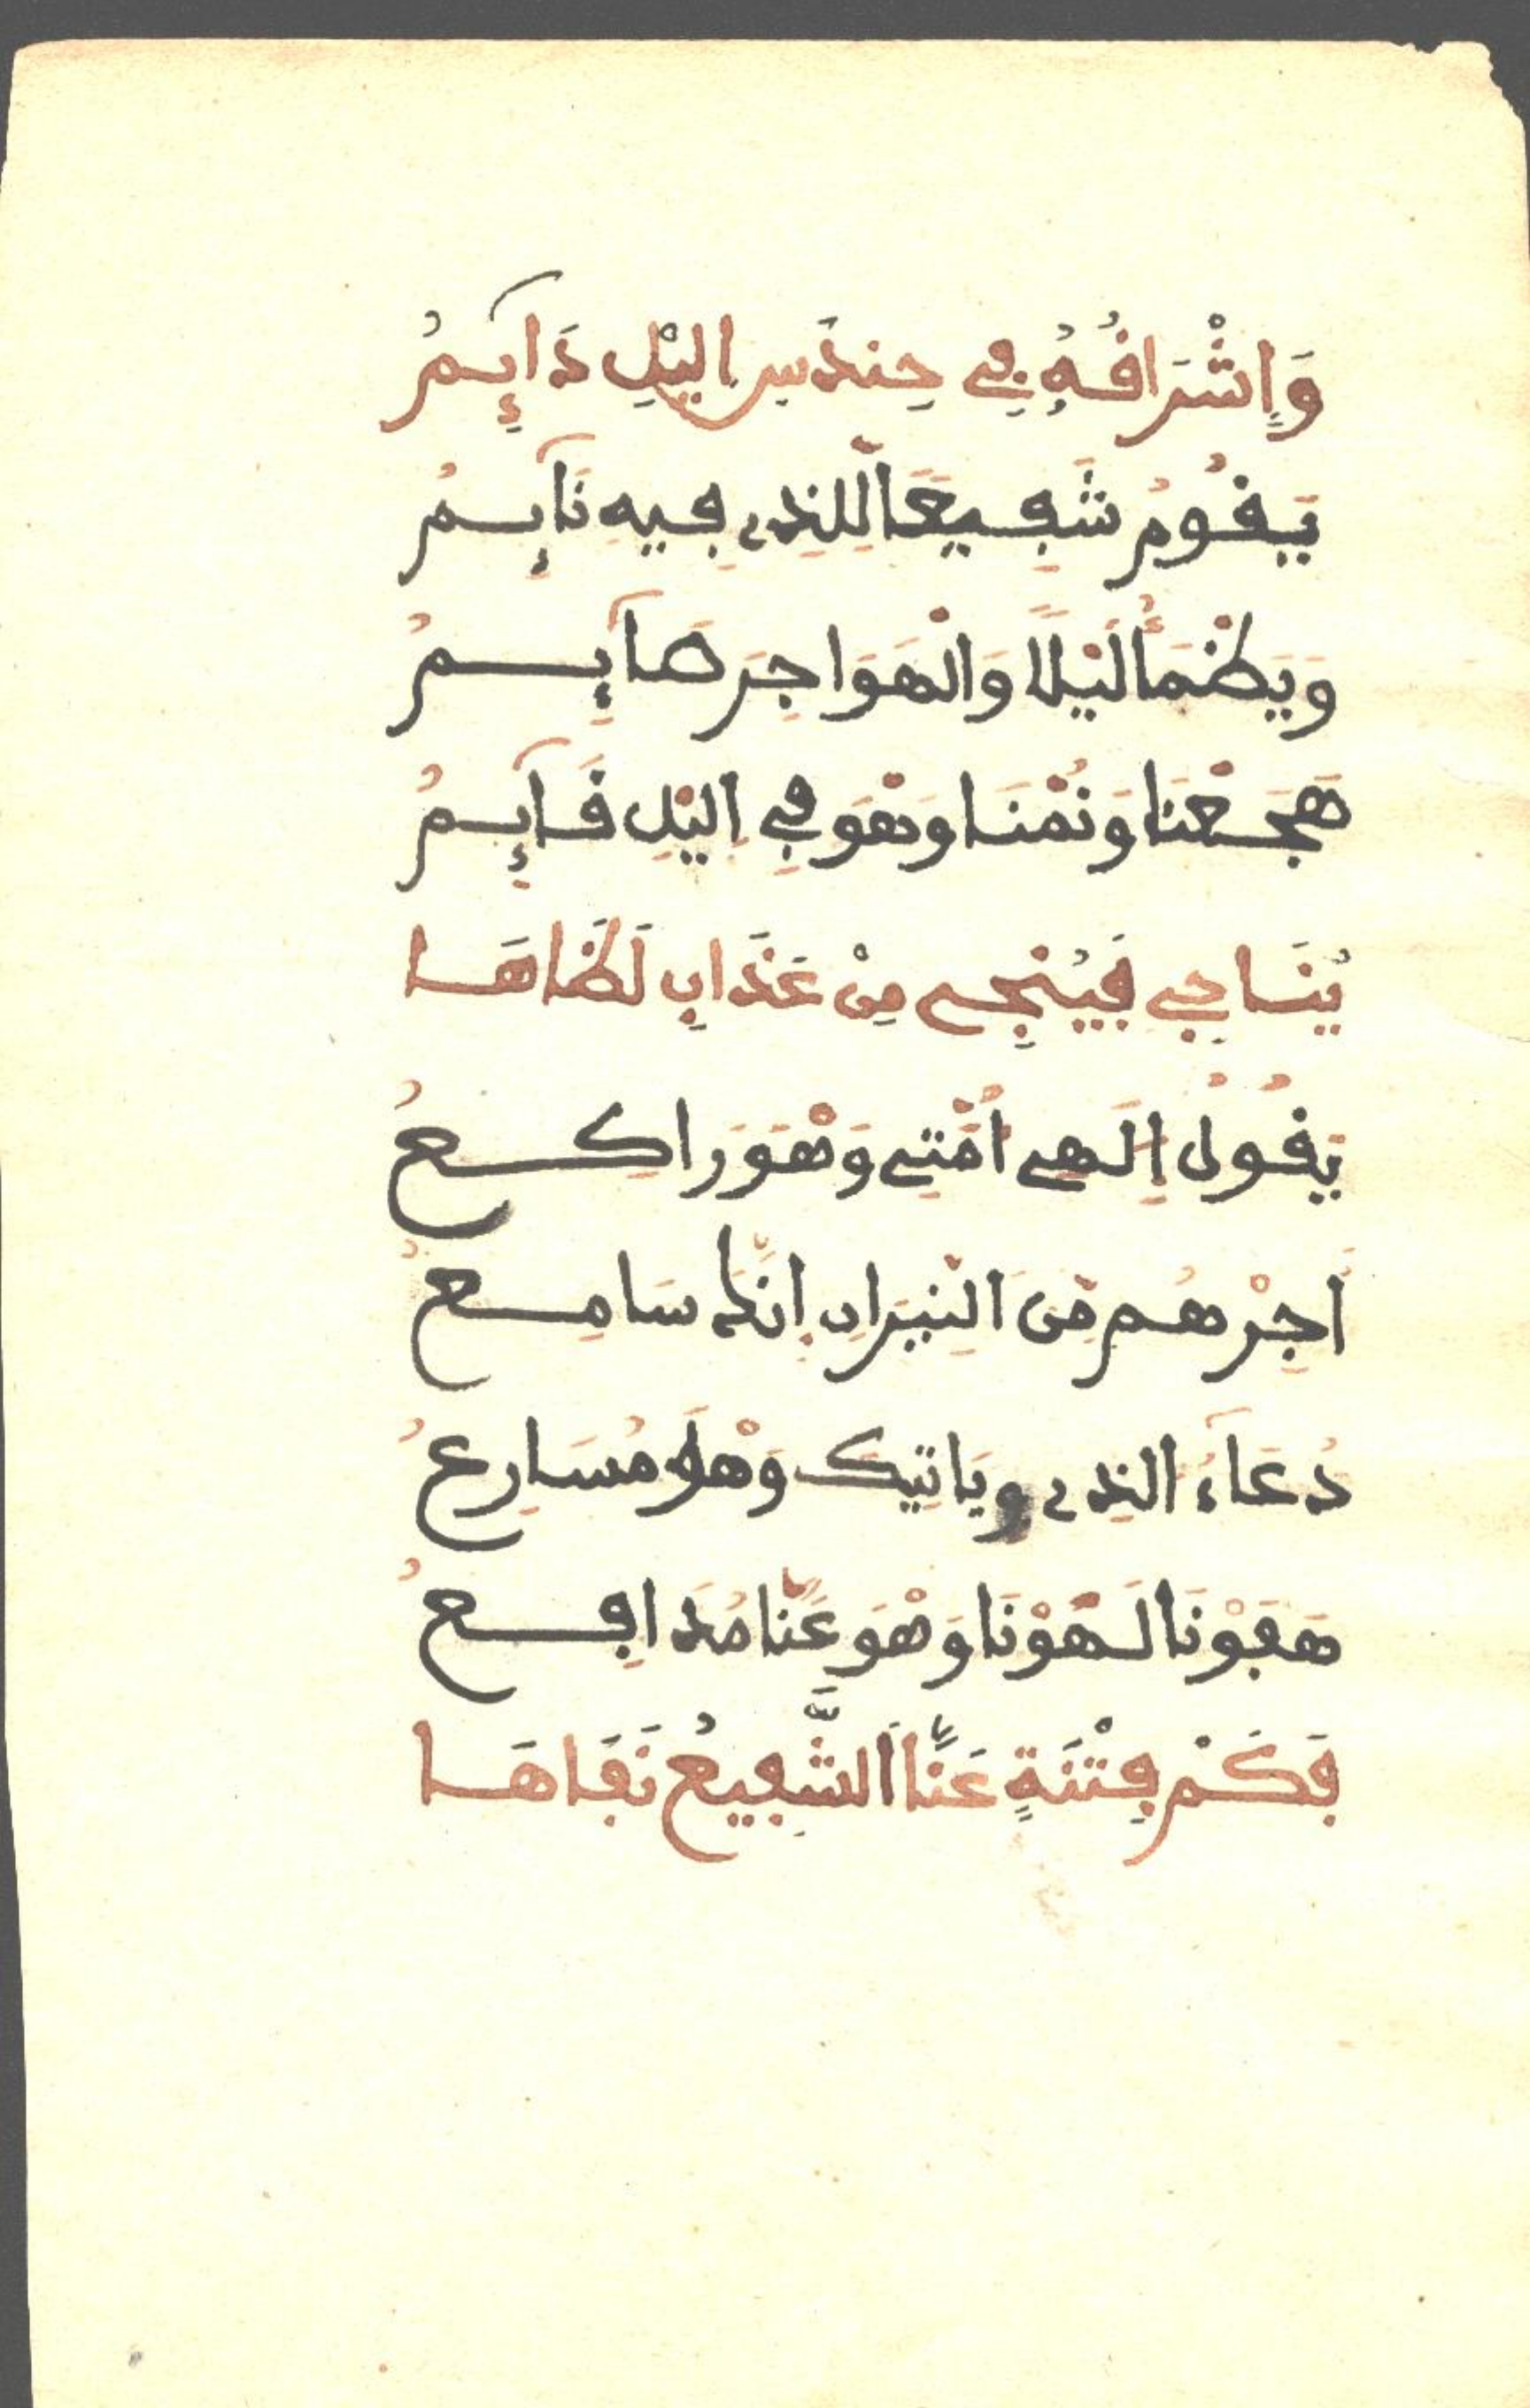 وَإِشْرَافُهُ فِي حِندَسِ اليْلِ دَآئِمُ
يَقُومُ شَفِيعًا لِلَّذِي فِيهِ نَآئِمُ
وَيَظْمَأُ لَيْلًا وَالْهَوَاجِرَ هَآئِمُ
هَجَعْنَا وَنُمْنَا وَهْوَ فِي اليْلِ قَآئِمُ
يُنَاجِي فَيُنْجِي مِنْ عَذَابِ لَظَاهَا
يَقُولُ إِلَهِي أُمَّتِي وَهْوَ رَاكِعُ
أَجِرْهُم مِّنَ النِّيرَانِ إِنَّكَ سَامِعُ
دُعَآءَ الذِي وياتِيكَ وَهْوَ مُسَارِعُ
هَفَوْنَا لَهَوْنَا وَهْوَ عَنَّا مُدَافِعُ
فَكَمْ فِتْنَةٍ عَنَّا الشَّفِيعُ نَفَاهَا